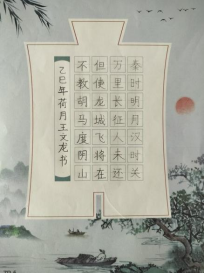 秦时明月汉时关
万里长征人未还
但使龙城飞将在
不教胡马度阴山
乙巳年荷月王文龙书